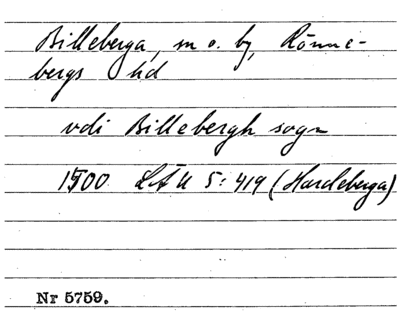 Billeberga, sn o. by, Rönne-
bergs hd
vdi Billebergh sogn
1500 LÄU 5: 419 (Hardeberga)
Nr 5759.